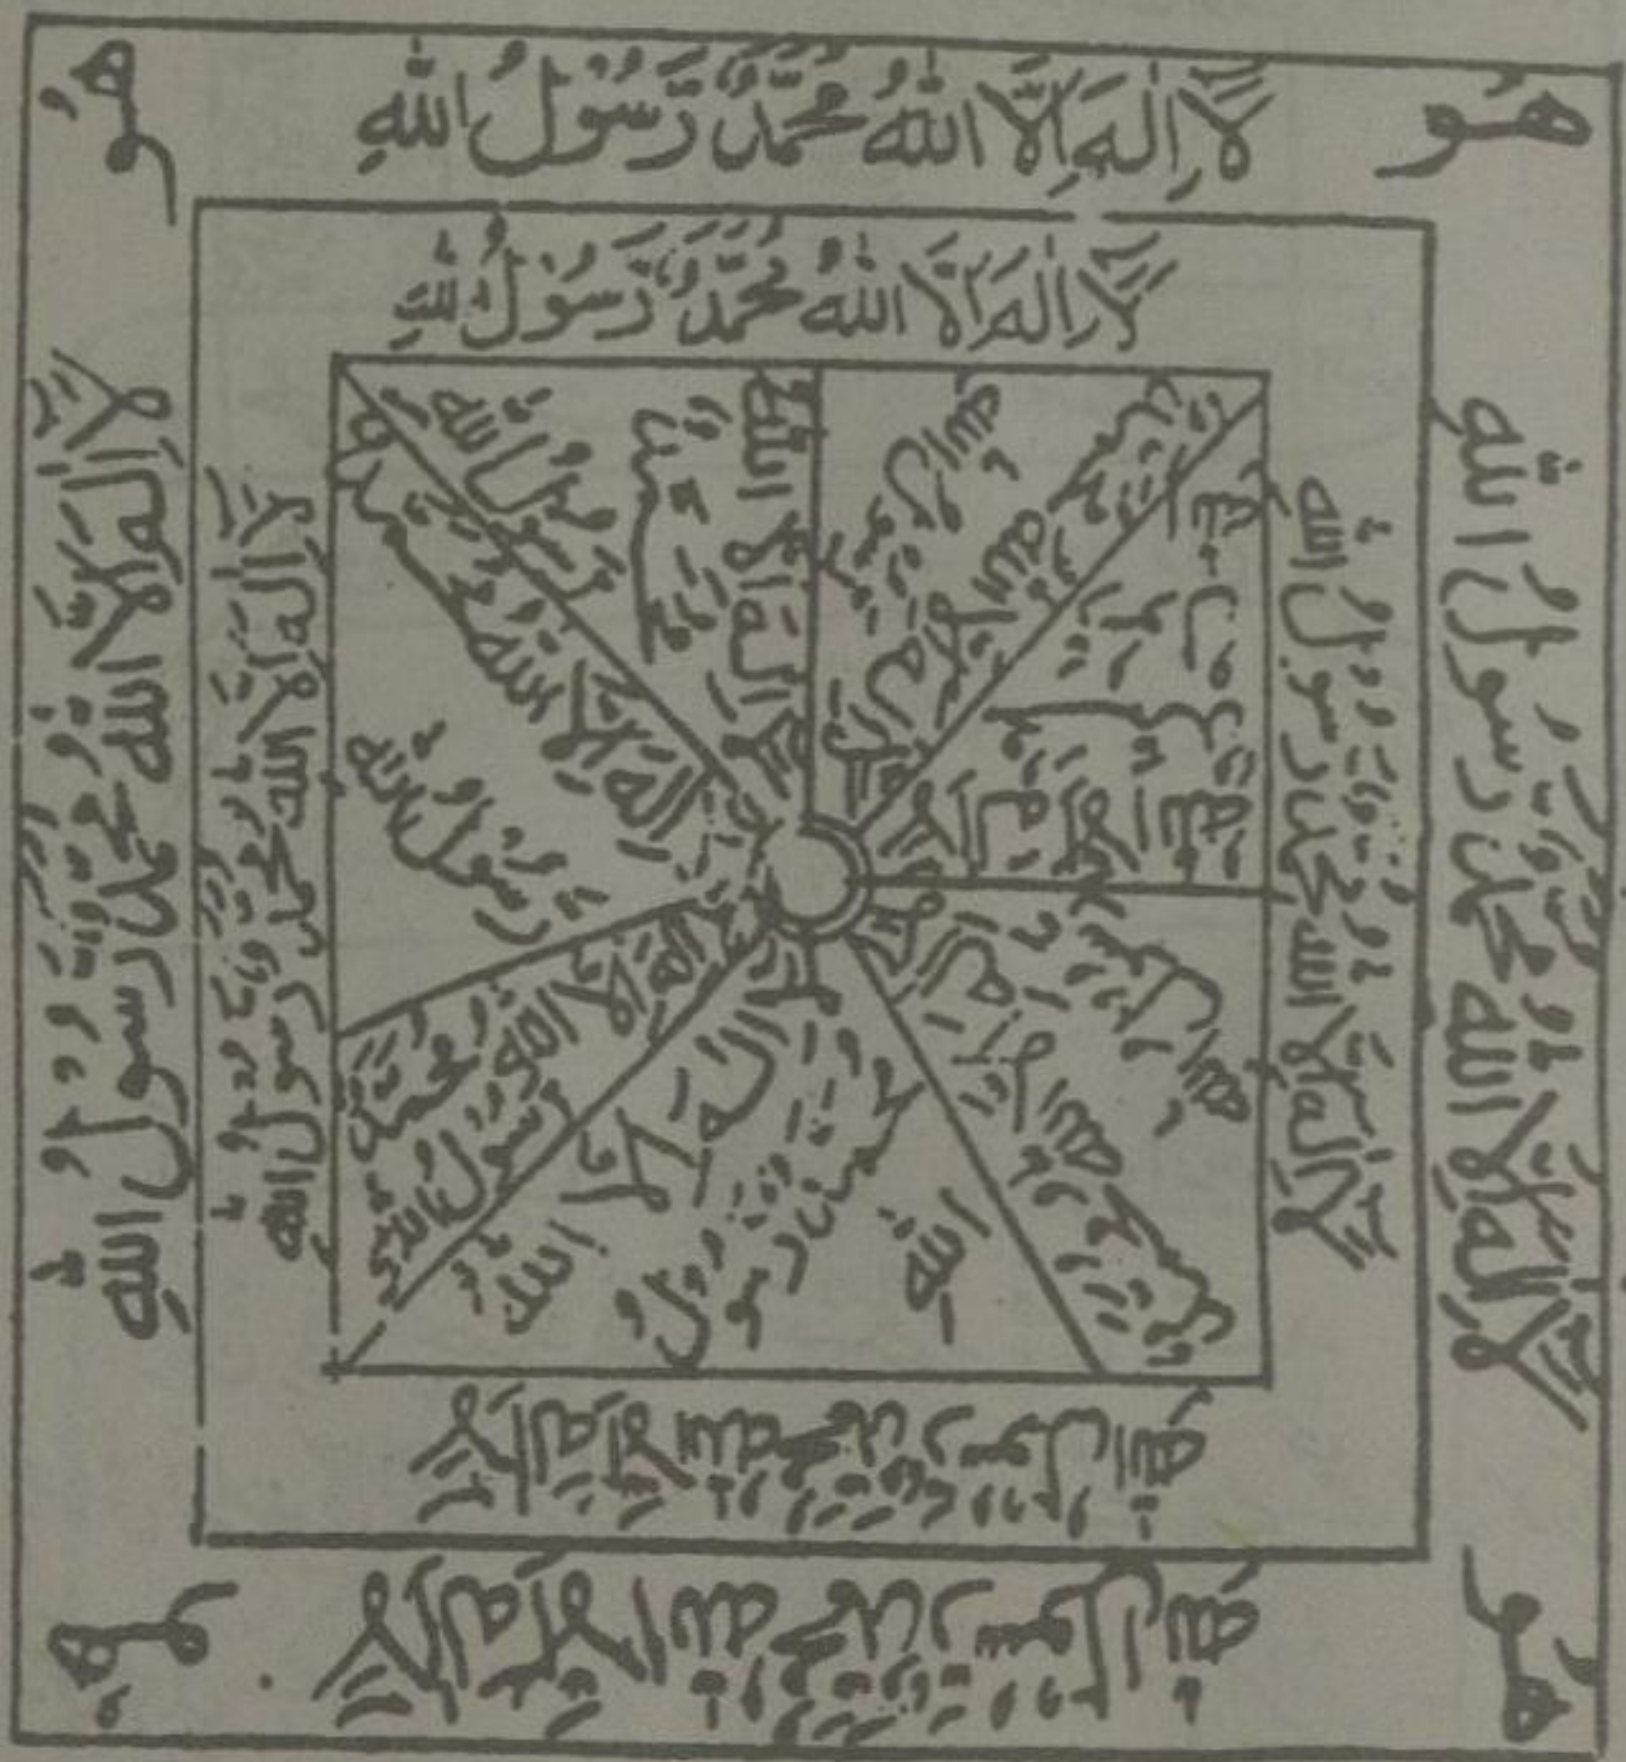 هُو
لَآ اِلٰهَ اِلَّا اللهُ مُحَمَّدٌ رَّسُوْلُ اللهِ
هُو
لَآ اِلٰهَ اِلَّا اللهُ مُحَمَّدٌ رَّسُوْلُ اللهِ
لَآ اِلٰهَ اِلَّا اللهُ مُحَمَّدٌ رَّسُوْلُ اللهِ
لَآ اِلٰهَ اِلَّا اللهُ مُحَمَّدٌ رَّسُوْلُ اللهِ
لَآ اِلٰهَ اِلَّا اللهُ مُحَمَّدٌ رَّسُوْلُ اللهِ
لَآ اِلٰهَ اِلَّا اللهُ مُحَمَّدٌ رَّسُوْلُ اللهِ
لَآ اِلٰهَ اِلَّا اللهُ مُحَمَّدٌ رَّسُوْلُ اللهِ
لَآ اِلٰهَ اِلَّا اللهُ مُحَمَّدٌ رَّسُوْلُ اللهِ
لَآ اِلٰهَ اِلَّا اللهُ مُحَمَّدٌ رَّسُوْلُ اللهِ
لَآ اِلٰهَ اِلَّا اللهُ مُحَمَّدٌ رَّسُوْلُ اللهِ
لَآ اِلٰهَ اِلَّا اللهُ مُحَمَّدٌ رَّسُوْلُ اللهِ
لَآ اِلٰهَ اِلَّا اللهُ مُحَمَّدٌ رَّسُوْلُ اللهِ
لَآ اِلٰهَ اِلَّا اللهُ مُحَمَّدٌ رَّسُوْلُ اللهِ
لَآ اِلٰهَ اِلَّا اللهُ مُحَمَّدٌ رَّسُوْلُ اللهِ
لَآ اِلٰهَ اِلَّا اللهُ مُحَمَّدٌ رَّسُوْلُ اللهِ
هُو
لَآ اِلٰهَ اِلَّا اللهُ مُحَمَّدٌ رَّسُوْلُ اللهِ
هُو